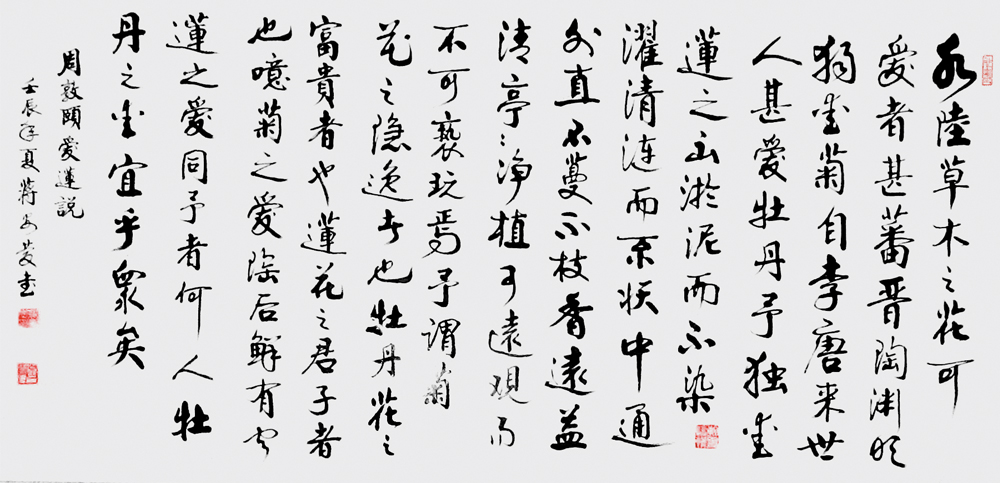 水陸草木之花可
愛者甚蕃晋陶渊明
独爱菊自李唐来世
人甚愛牡丹予独爱
蓮之出淤泥而不染
濯清涟而不妖中通
外直不蔓不枝香遠益
清亭〻净植可遠观而
不可亵玩焉予謂菊
花之隐逸者也牡丹花之
富貴者也蓮花之君子者
也噫菊之愛陶后鮮有闻
蓮之愛同予者何人牡
丹之爱宜乎衆矣
周敦頤愛蓮説
壬辰年夏蒋书